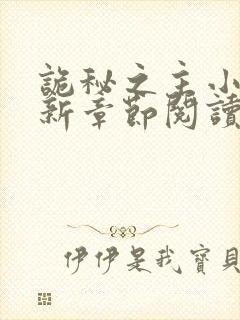 詭秘之主小
新章節閱讀
伊伊是我寶貝